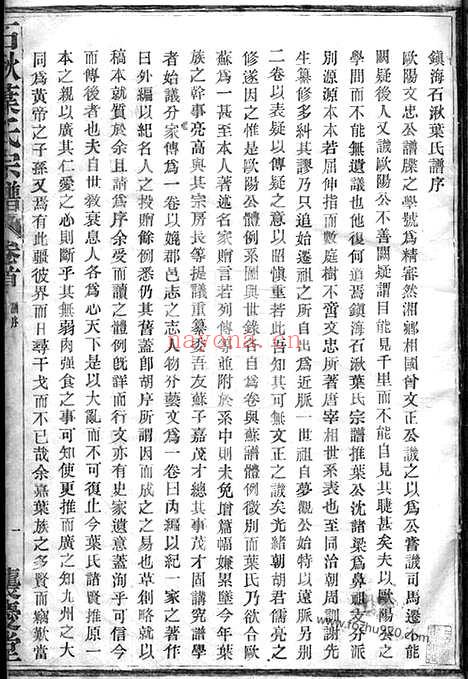 鎮海石湫葉氏譜序
歐陽文忠公譜牒之學號為精審然湘鄉相國曾文正公譏之以為公嘗譏司馬遷能
闕疑後人又譏歐陽公不善闕疑謂目能見千里而不能自見其睫甚矣夫以歐陽公之
學間而不能無遺議也他復何道焉鎮海石湫葉氏宗譜推葉公沈諸梁為鼻祖支分派
別源源本本表列代數庭樹不啻文忠所著唐宰相世系表也至同治朝周
生纂修多糾其謬乃只追始遷祖之所自出為近脈一世祖自夢觀公始特以遠脈另別
二卷以表疑以傳疑之意以昭慎重若此吾知其可無文正之譏矣光緒朝胡君儒亮之
修遂因之惟是歐陽公體例系圖與世錄各自為卷與蘇譜體例微別而葉氏乃欲合歐
蘇為一甚至本人著述名家贈言若列傳等並附於系中則未免增篇幅嫌累墜今年葉
族之幹事亮高與其宗房長等提議重纂玆吾友蘇子嘉茂才總其事茂才固講究譜學
者始議分家傳為一卷以媲郡邑志之志人物分藝文為一卷曰內編以紀一家之著作
曰外編以紀名人之投贈餘例悉仍其舊蓋即胡序所謂因而成之之易也草創略就以
稿本就質於余且請為序余受而讀之體例旣詳而行文亦有史家遺意義尚可信今
而傳後者也自世教衰息人各為心天下是以大亂而不可復止今葉氏諸賢推原一
本之親以廣其仁愛之心則斷乎其無弱肉强食之事可知使更推而廣之知九州之大
同為黃帝之子孫又焉有此疆彼界而日尋干戈而不已哉余嘉葉族之多賢而竊歎當
石湫葉氏宗譜 卷首 譜序 一